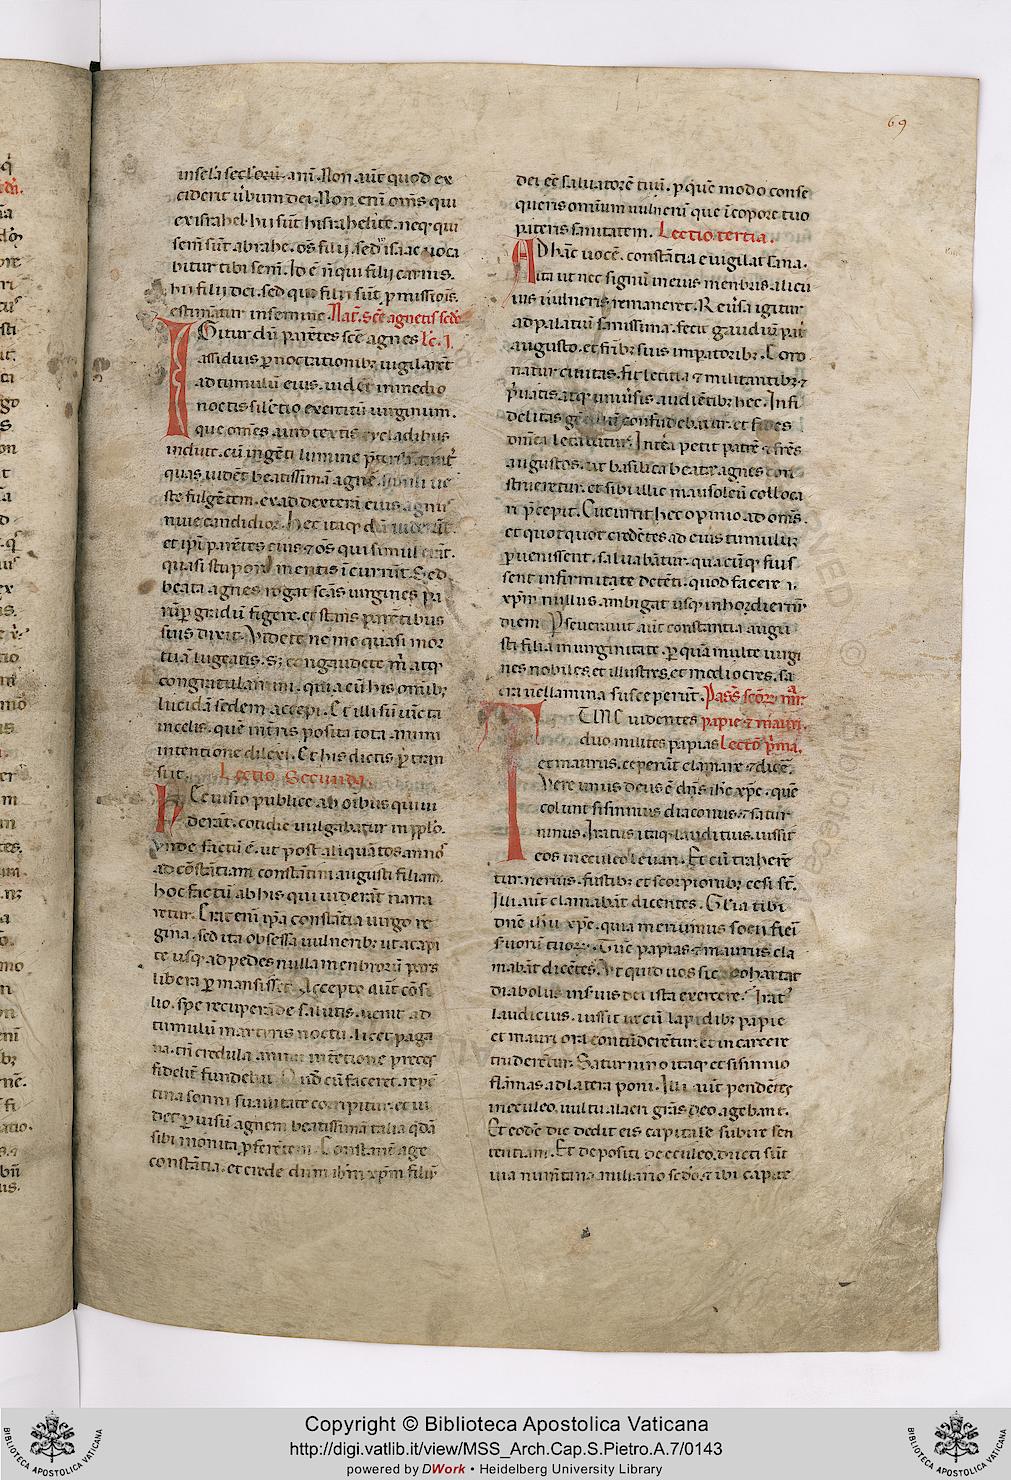 69
in sc̄la sēclorū. am̄. Non aūt quod ex
ciderit ūbum dei. Non enī om̄s qui
ex israhel. hii sūt hisrahelite. neq; qui
sem̄ sūt abrahe. om̄s filii. sed isaac uoca
bitur tibi sem̄. Id ē n̄ qui filii carnis.
hii filii dei. sed qui filii sūt p̄missiōis.
estimātur in semine Nat̄. sc̄e agnetis sc̄de
IGitur dū parētes sc̄e agnes lc̄. I.
assiduis p̄noctationib; uigilarēt
ad tumulū eius. uidēt in medio
noctis silētio exercitū uirginum.
que om̄es auro textis cycladibus
indute. cū ingēti lumine
quas uidēt beatissimā agnē. simili ue
ste fulgētem. et ad dexterā eius agnū
niue candidior. Hec itaq; dū uiderūt.
et ip̄i parētes eius & om̄s qui simul erāt.
quasi stupore mentis īcurrūt. Sed
beata agnes rogat sc̄as uirgines pa
rūp̄ gradū figere. et stans parētibus
suis dixit. Videte ne me quasi mor
tuā lugeatis. s; congaudete m̄ atq;
congratulamini. quia cū his om̄ib;
lucidā sedem accepi. Et illi sū iūcta
in celis. quē in t̄ris posita tota animi
intentione dilexi. Et his dictis p̄tran
siit. Lectio Secunda.
HEc uisio publice ab oib;us qui ui
derāt. cotidie uulgabatur in pp̄lo.
Vnde factū ē. ut post aliquātos annos
ad cōstātiam constātini augusti filiam.
hoc factū ab his qui uiderāt narra
retur. Erat enī ip̄a constātia uirgo re
gina. sed ita obsessa uulnerib; ut a capi
te usq; ad pedes nulla menbrorū pars
libera p̄mansisset. Accepto aūt cōsi
lio. spe recuperāde salutis. uenit ad
tumulū martyris noctu. licet paga
na. tn̄ credula animi intētione preces
fidelit̄ fundebat. Quod cū faceret. repē
tina somni suauitate corripitur. et ui
det p̄ uisū agnem beatissimā talia q̄dā
sibi monita p̄ferētem. Constanter age
constātia. et crede dn̄um ih̄m xp̄m filiū
dei eē saluatorē tuū. p̄ quē modo conse
queris omnium uulnerū que ī corpore tuo
pateris sanitatem. Lectio tertia.
AD hāc uocē. constātia euigilat sana.
ita ut nec signum in eius menbris alicu
ius uulneris remaneret. Reūsa igitur
ad palatiū sanissima. fecit gaudiū pat̄
augusto. et fr̄ib; suis imperatorib;. Coro
natur ciuitas. fit letitia & militantib; &
p̄uatis. atq; uniūsis audiētib; hec. Infi
delitas gētiliū confūdebatur. et fides
dn̄ica letabatur. Int̄ea petit patrē & fr̄es
augustos. ut basilica beate agnes con
strueretur. et sibi illic mausoleū colloca
ri p̄cepit. Cucurrit hec opinio ad om̄s.
et quotquot credētes ad eius tumulū
p̄uenissent. saluabātur. quacūq; fuis
sent infirmitate detēti. quod facere
xp̄m nullus ambigat usq; in hodiernū
diem. P̄seuerauit aūt constantia augu
sti filia in uirginitate. p̄ quā multe uirgi
nes nobiles. et illustres. et mediocres. sa
cra uellamina susceperūt. Pass̄ sc̄or; mr̄
TUNC uidentes papie & mauri.
duo milites papias Lectō p̄ma.
et maurus. ceperūt clamare & dicē.
Vere unus deus ē dn̄s ih̄c xp̄c. quē
colunt sisinnius diaconus & satur
ninus. Iratus itaq; laudicius. iussit
eos in eculeo leuari. Et cū traherē
tur neruis. fustib; et scorpionib; cesi st̄.
Illi aūt clamabāt dicentes. Glōia tibi
dn̄e ih̄u xp̄e. quia meruimus socii fieri
seruorū tuor;. Tūc papias & maurus cla
mabāt dicētes. Vt quid uos sic cohartat
diabolus in seruis dei ista exercere. Irat̄
laudicius. iussit ut cū lapidib; papie
et mauri ora contūderētur. et in carcere
truderētur. Saturnino itaq; et sisinnio
flāmas ad latera poni. Illi aūt pendētes
in eculeo. uultu alacri grās deo agebant.
Et eodē die dedit eis capitale subire sen
tentiam. Et depositi de eculeo. ducti sūt
uia numētana miliario sc̄do. & ibi capite
Copyright © Biblioteca Apostolica Vaticana
http://digi.vatlib.it/view/MSS_Arch.Cap.S.Pietro.A.7/0143
powered by DWork • Heidelberg University Library
BIBLIOTECA APOSTOLICA VATICANA
BIBLIOTECA APOSTOLICA VATICANA